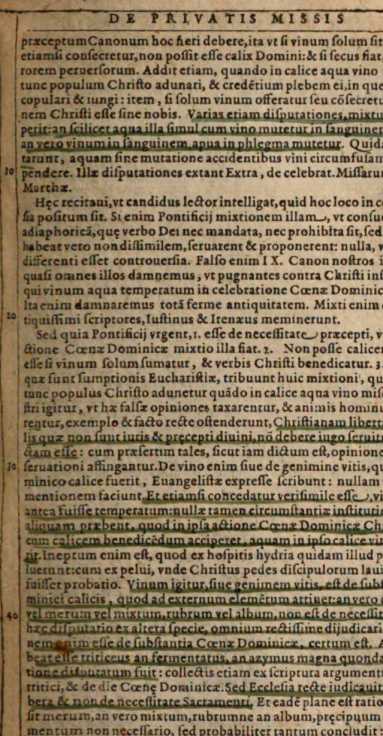 DE PRIVATIS MISSIS
præceptum Canonum hoc fieri debere, ita vt si vinum solum sit
etiamsi consecretur, non possit esse calix Domini: & si secus fiat
rorem peruersorum. Addit etiam, quando in calice aqua vino
tunc populum Christo adunari, & credētium plebem ei, in que
copulari & iungi: item, si solum vinum offeratur seu cōsecretu
nem Christi esse sine nobis. Varias etiam disputationes, mixtu
perit: an scilicet aqua illa simul cum vino mutetur in sanguinem
an vero vinum in sanguinem, aqua in phlegma mutetur. Quida
tarunt, aquam sine mutatione accidentibus vini circumfusam
10 pendere. Illæ disputationes extant Extra, de celebrat. Missarum
Marthæ.
Hęc recitaui, vt candidus lector intelligat, quid hoc loco in co
sia positum sit. Si enim Pontificij mixtionem illam, vt consue
adiaphoricā, quę verbo Dei nec mandata, nec prohibita sit, sed
habeat vero non dissimilem, seruarent & proponerent: nulla, v
differenti esset controuersia. Falso enim IX. Canon nostros i
quasi omnes illos damnemus, vt pugnantes contra Christi ins
qui vinum aqua temperatum in celebratione Cœnæ Dominic
Ita enim damnaremus totā ferme antiquitatem. Mixti enim
20 tiquissimi scriptores, Iustinus & Irenæus meminerunt.
Sed quia Pontificij vrgent, 1. esse de necessitate præcepti, v
ctione Cœnæ Dominicæ mixtio illa fiat. 2. Non posse calicem
esse si vinum solum sumatur, & verbis Christi benedicatur. 3.
quæ sunt sumptionis Eucharistiæ, tribuunt huic mixtioni, qu
tunc populus Christo adunetur quādo in calice aqua vino misc
stri igitur, vt hæ falsæ opiniones taxarentur, & animis homin
rentur, exemplo & facto recte ostenderunt, Christianam libert
lis quæ non sunt iuris & præcepti diuini, nō debere iugo seruit
ctam esse: cum præsertim tales, sicut iam dictum est, opinione
30 seruationi affingantur. De vino enim siue de genimine vitis, qu
minico calice fuerit, Euangelistæ expresse scribunt: nullam
mentionem faciunt. Et etiamsi concedatur verisimile esse, vi
antea fuisse temperatum: nullæ tamen circumstantiæ institutio
aliquam præbent, quod in ipsa actione Cœnæ Dominicæ Ch
cum calicem benedicēdum acciperet, aquam in ipso calice vin
rit. Ineptum enim est, quod ex hospitis hydria quidam illud p
luerunt: cum ex pelui, vnde Christus pedes discipulorum laui
fuisset probatio. Vinum igitur, siue genimen vitis, est de subst
minici calicis, quod ad externum elemētum attinet: an vero
40 vel merum vel mixtum, rubrum vel album, non est de necessit
hæc disputatio ex altera specie, omnium rectissime dijudicari
nem enim esse de substantia Cœnæ Dominicæ, certum est. A
beat esse triticeus an fermentatus, an azymus magna quonda
tione disputatum fuit: collectis etiam ex scriptura argumenti
tritici, & de die Cœnę Dominicæ. Sed Ecclesia recte iudicauit
bera & non de necessitate Sacramenti. Et eadē plane est ratio
sit merum, an vero mixtum, rubrumne an album, pręcipuum
mentum non necessario, sed probabiliter tantum concludit: